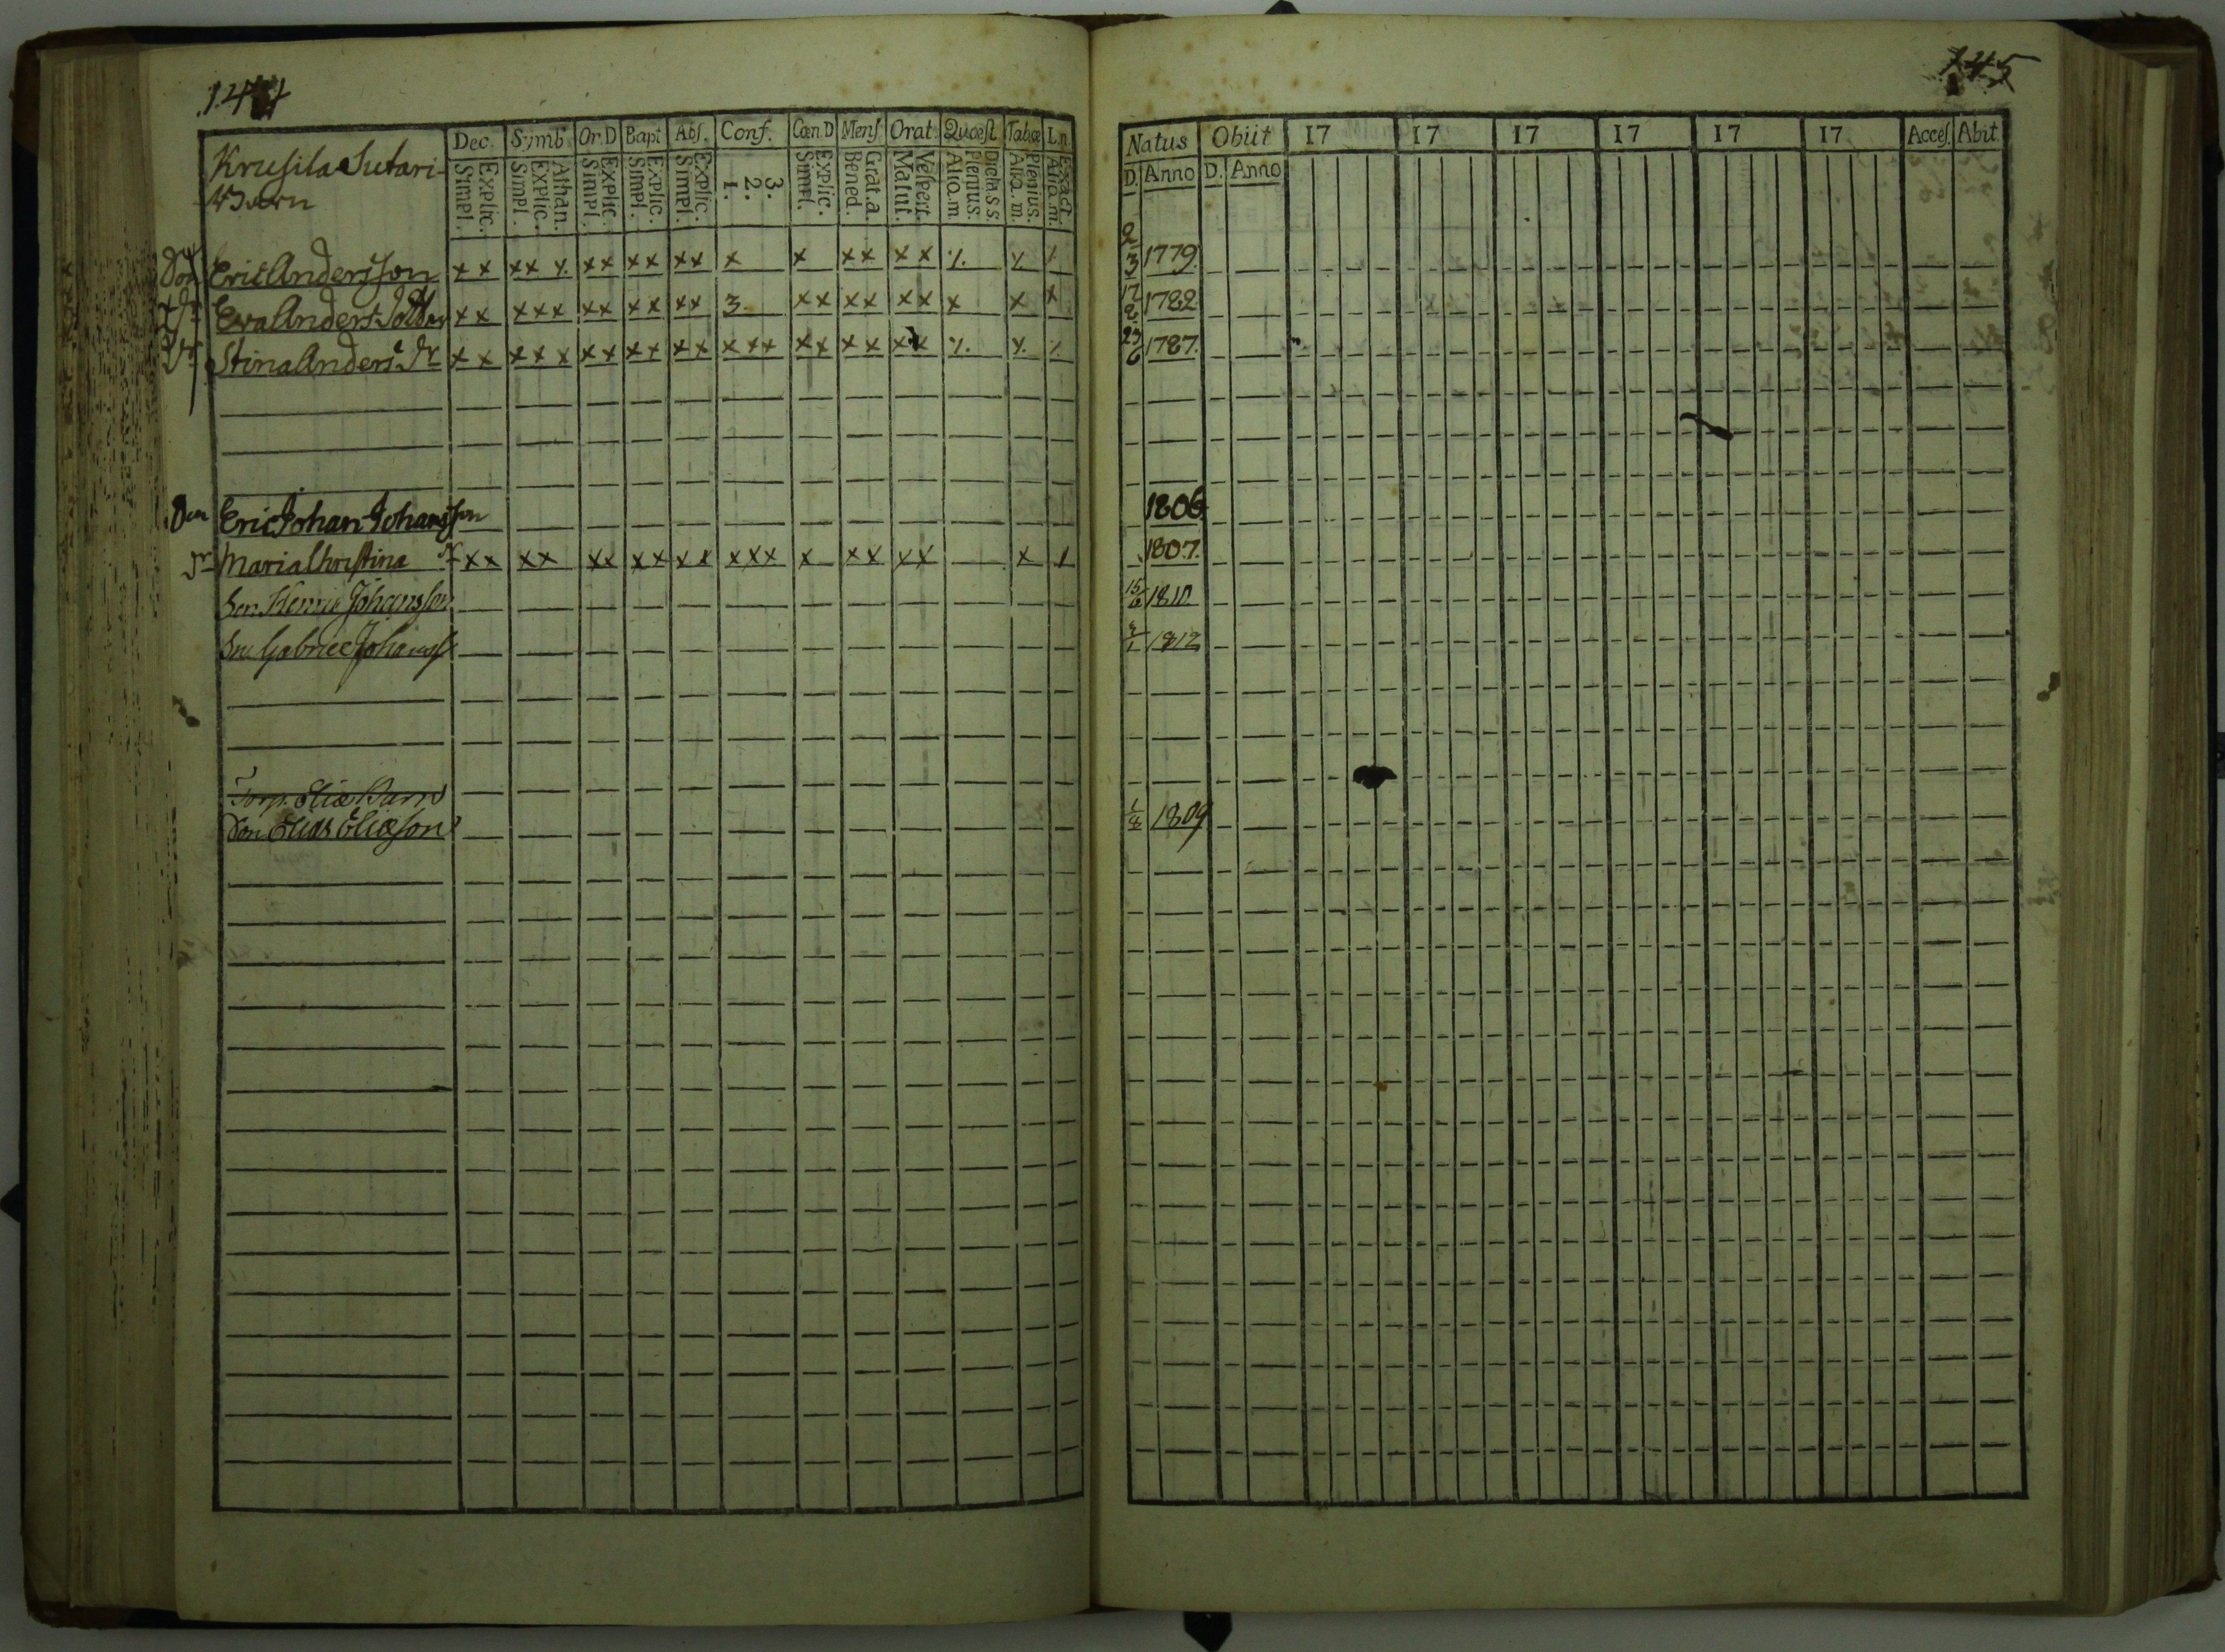 144
Dec. Symb. Or.D Bapt Abſ. Conf. Cœn.D Menſ Orat. Quæſt Tabœ L.n.
Simpl. Explic. Simpl. Explic. Athan. Simpl. Explic. Simpl. Explic. Simpl. Explic. 1. 2. 3. Simpl. Explic. Bened. Grat.a. Matut. Veſpert. Aliq.m. Plenius. Dicta s.s. Aliq.m. Plenius. Aliq.m. Exact.
Kruſila Sutari
Barn
Son Eric Andersſon x x x x x x x x x x x x x x x x x x
Eva Anders Dotter x x x x x x x x x x x 3. x x x x x x x x x
Dr Stina Anders Dr x x x x x x x x x x x x x x x x x x x x
Son Eric Johan Johansſon
Dr Maria Christina x x x x x x x x x x x x x x x x x x x
Son Henric Johansſon
Son Gabriel Johansſ
Torp. Eliæ Barn
Son Elias Eliæſon
145
Natus Obiit 17 17 17 17 17 17 Acceſ. Abit.
D. Anno D. Anno
2/3 1779
17/2 1782
23/6 1787.
1806
1807.
15/6 1810
1812
1809